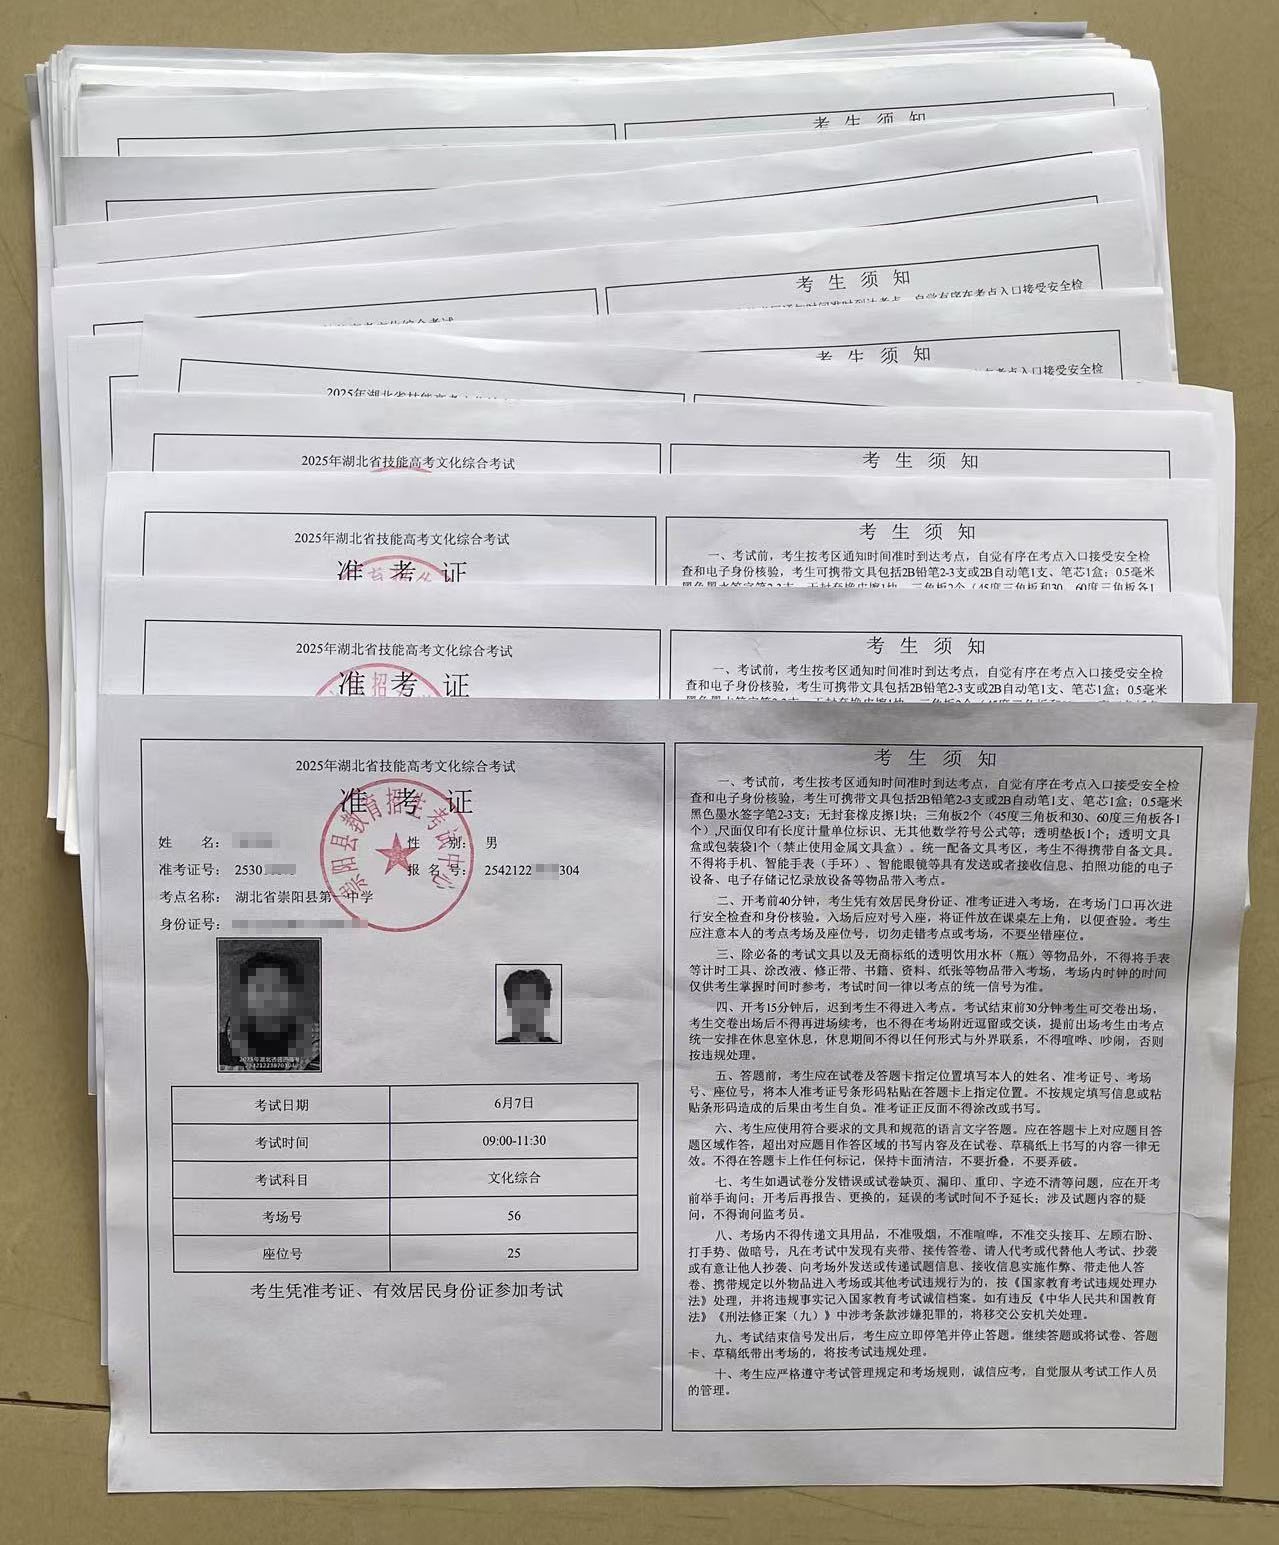 考 生 须 知
考 生 须 知
考生须知
2025年湖北省技能高考文化综合考试
考 生 须 知
2025年湖北省技能高考文化综合考试
准 考 证
考 生 须 知
一、考试前，考生按考区通知时间准时到达考点，自觉有序在考点入口接受安全检
查和电子身份核验，考生可携带文具包括2B铅笔2-3支或2B自动笔1支、笔芯1盒；0.5毫米
黑色墨水签字笔2-3支；无封套橡皮擦1块；三角板2个（45度三角板和30、60度三角板各1
2025年湖北省技能高考文化综合考试
准 考 证
考 生 须 知
一、考试前，考生按考区通知时间准时到达考点，自觉有序在考点入口接受安全检
查和电子身份核验，考生可携带文具包括2B铅笔2-3支或2B自动笔1支、笔芯1盒；0.5毫米
2025年湖北省技能高考文化综合考试
准 考 证
崇阳县教育招生考试中心
姓 名：
性 别： 男
准考证号： 2530
报 名 号： 2542122 304
考点名称： 湖北省崇阳县第一中学
身份证号：
考试日期 6月7日
考试时间 09:00-11:30
考试科目 文化综合
考场号 56
座位号 25
考生凭准考证、有效居民身份证参加考试
考 生 须 知
一、考试前，考生按考区通知时间准时到达考点，自觉有序在考点入口接受安全检
查和电子身份核验，考生可携带文具包括2B铅笔2-3支或2B自动笔1支、笔芯1盒；0.5毫米
黑色墨水签字笔2-3支；无封套橡皮擦1块；三角板2个（45度三角板和30、60度三角板各1
个）,尺面仅印有长度计量单位标识、无其他数学符号公式等；透明垫板1个；透明文具
盒或包装袋1个（禁止使用金属文具盒）。统一配备文具考区，考生不得携带自备文具。
不得将手机、智能手表（手环）、智能眼镜等具有发送或者接收信息、拍照功能的电子
设备、电子存储记忆录放设备等物品带入考点。
二、开考前40分钟，考生凭有效居民身份证、准考证进入考场，在考场门口再次进
行安全检查和身份核验。入场后应对号入座，将证件放在课桌左上角，以便查验。考生
应注意本人的考点考场及座位号，切勿走错考点或考场，不要坐错座位。
三、除必备的考试文具以及无商标纸的透明饮用水杯（瓶）等物品外，不得将手表
等计时工具、涂改液、修正带、书籍、资料、纸张等物品带入考场，考场内时钟的时间
仅供考生掌握时间时参考，考试时间一律以考点的统一信号为准。
四、开考15分钟后，迟到考生不得进入考点。考试结束前30分钟考生可交卷出场，
考生交卷出场后不得再进场续考，也不得在考场附近逗留或交谈，提前出场考生由考点
统一安排在休息室休息，休息期间不得以任何形式与外界联系，不得喧哗、吵闹，否则
按违规处理。
五、答题前，考生应在试卷及答题卡指定位置填写本人的姓名、准考证号、考场
号、座位号，将本人准考证号条形码粘贴在答题卡上指定位置。不按规定填写信息或粘
贴条形码造成的后果由考生自负。准考证正反面不得涂改或书写。
六、考生应使用符合要求的文具和规范的语言文字答题。应在答题卡上对应题目答
题区域作答，超出对应题目作答区域的书写内容及在试卷、草稿纸上书写的内容一律无
效。不得在答题卡上作任何标记，保持卡面清洁，不要折叠，不要弄破。
七、考生如遇试卷分发错误或试卷缺页、漏印、重印、字迹不清等问题，应在开考
前举手询问；开考后再报告、更换的，延误的考试时间不予延长；涉及试题内容的疑
问，不得询问监考员。
八、考场内不得传递文具用品，不准吸烟，不准喧哗，不准交头接耳、左顾右盼、
打手势、做暗号，凡在考试中发现有夹带、接传答卷、请人代考或代替他人考试、抄袭
或有意让他人抄袭、向考场外发送或传递试题信息、接收信息实施作弊、带走他人答
卷、携带规定以外物品进入考场或其他考试违规行为的，按《国家教育考试违规处理办
法》处理，并将违规事实记入国家教育考试诚信档案。如有违反《中华人民共和国教育
法》《刑法修正案（九）》中涉考条款涉嫌犯罪的，将移交公安机关处理。
九、考试结束信号发出后，考生应立即停笔并停止答题。继续答题或将试卷、答题
卡、草稿纸带出考场的，将按考试违规处理。
十、考生应严格遵守考试管理规定和考场规则，诚信应考，自觉服从考试工作人员
的管理。